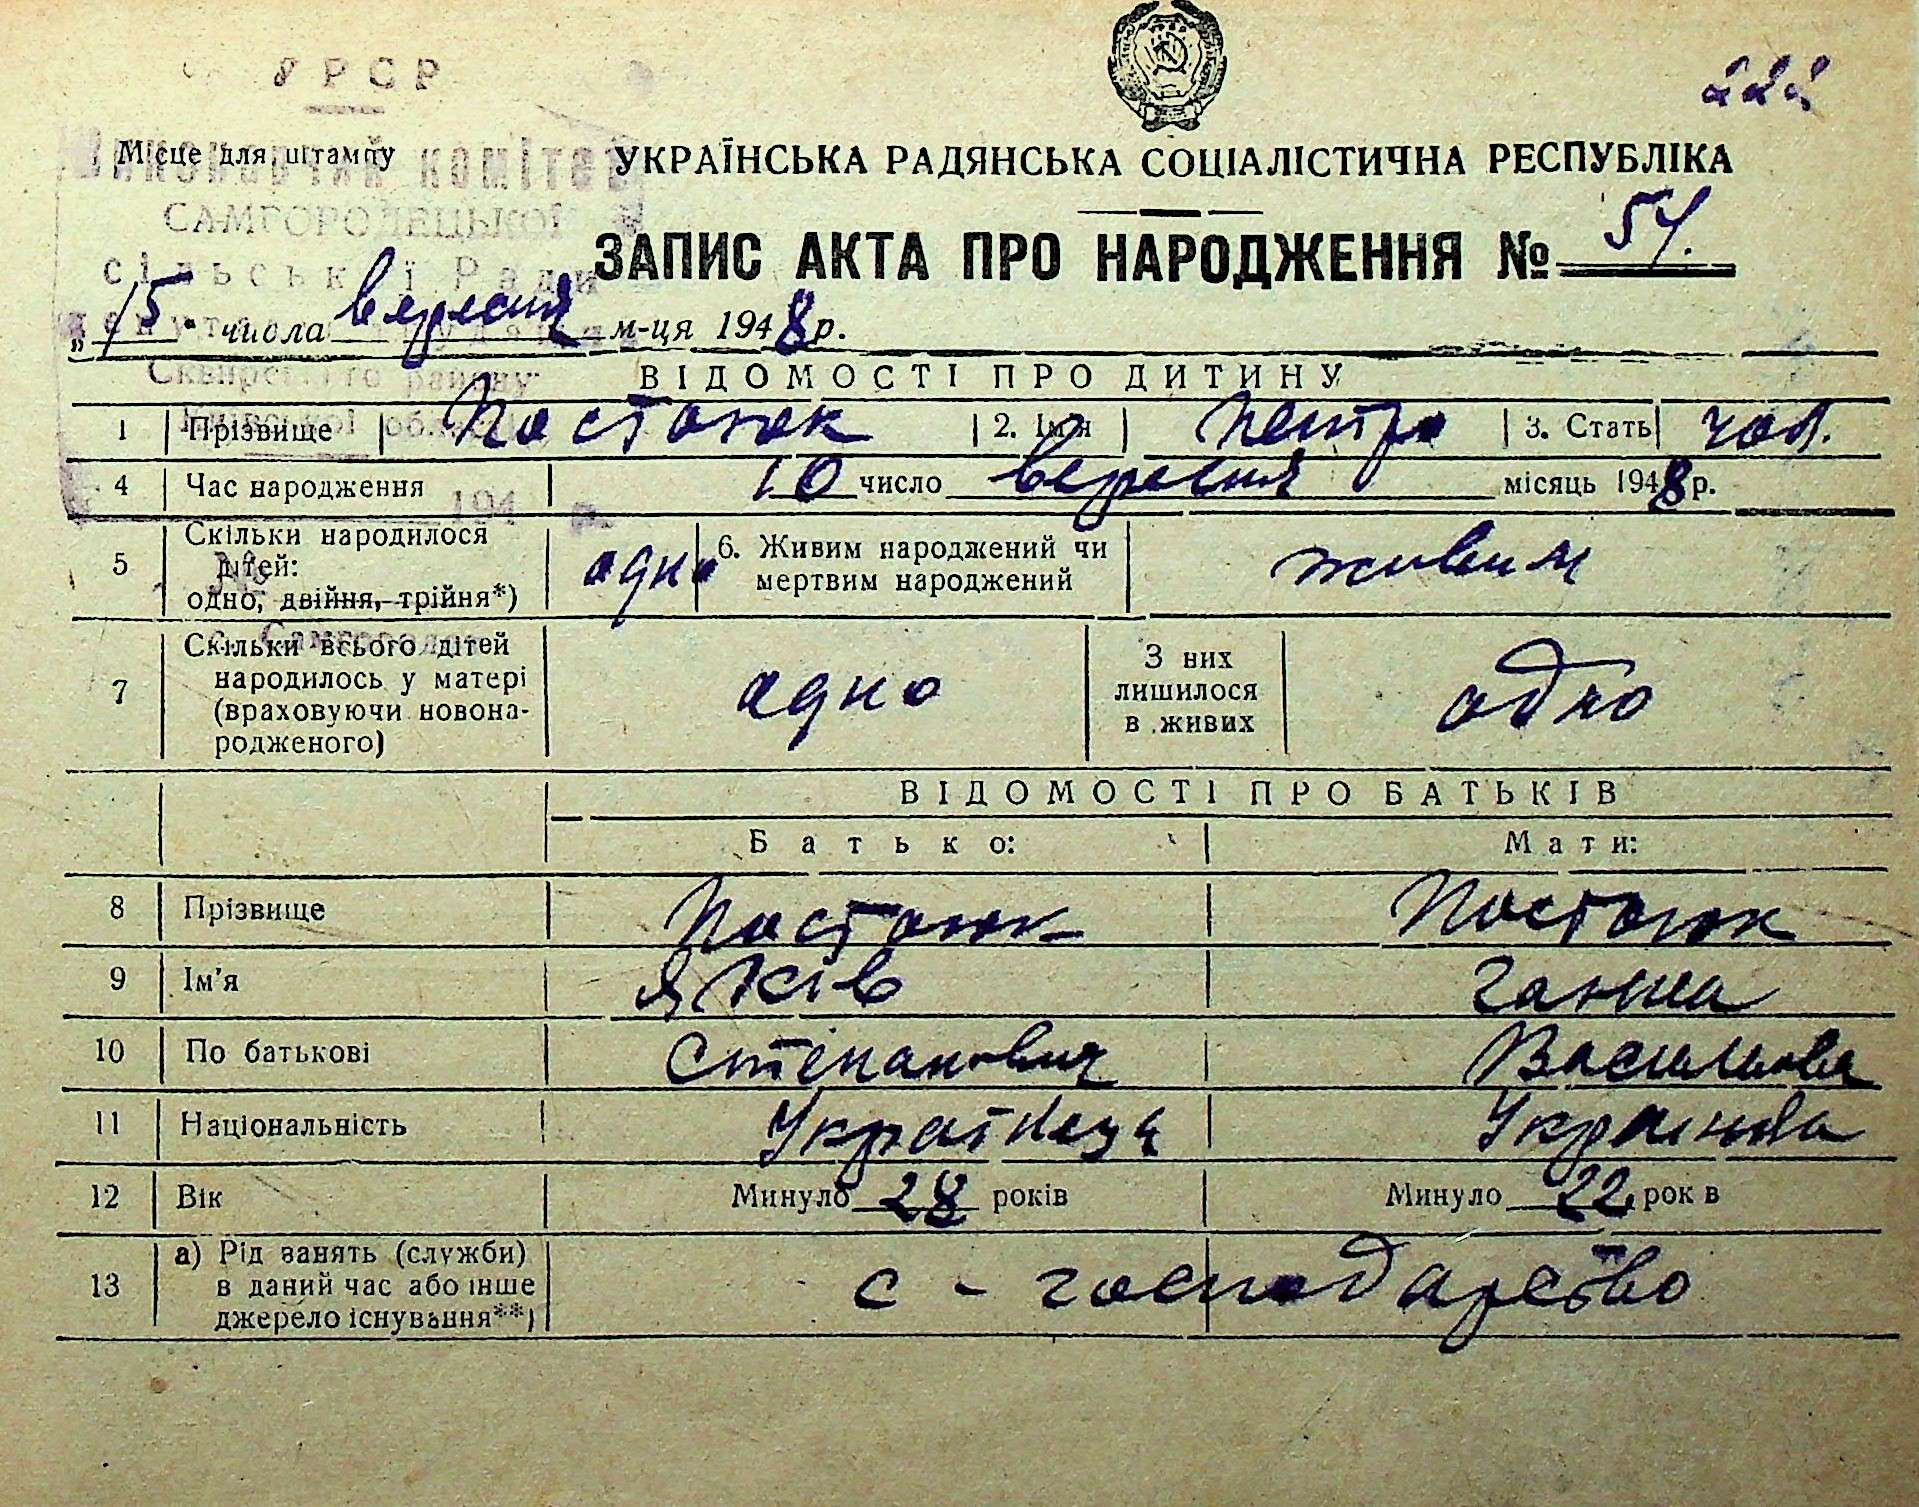 УРСР
222
Місце для штампу
УКРАЇНСЬКА РАДЯНСЬКА СОЦІАЛІСТИЧНА РЕСПУБЛІКА
Виконавчий комітет
САМГОРОДЕЦЬКОЇ
сільської Ради
ЗАПИС АКТА ПРО НАРОДЖЕННЯ № 54.
„15" числа вересня м-ця 1948 р.
Сквирського району
Київської області
ВІДОМОСТІ ПРО ДИТИНУ
1 Прізвище Постоюк 2. Ім'я Петро 3. Стать чол.
4 Час народження 10 число вересня місяць 1948 р.
194 р.
5 Скільки народилося дітей: одно, двійня, трійня*) одно 6. Живим народжений чи мертвим народжений живим
№
7 Скільки всього дітей народилось у матері (враховуючи новонародженого) одно З них лишилося в живих одно
ВІДОМОСТІ ПРО БАТЬКІВ
Батько: Мати:
8 Прізвище Постоюк Постоюк
9 Ім'я Яків Ганна
10 По батькові Степанович Василівна
11 Національність Українець Українка
12 Вік Минуло 28 років Минуло 22 рок в
13 а) Рід занять (служби) в даний час або інше джерело існування**) с - господарство